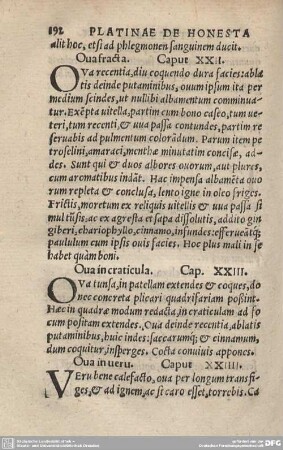 192 PLATINAE DE HONESTA
alit hoc, etsi ad phlegmonen sanguinem ducit.
Oua fracta. Caput XXII.
OVa recentia, diu coquendo dura facies: abla
tis deinde putaminibus, ouum ipsum ita per
medium scindes, ut nullibi albamentum comminua-
tur. Exẽpta uitella, partim cum bono caseo, tum ue-
teri, tum recenti, & uua passa contundes, partim re
seruabis ad pulmentum colorãdum. Parum item pe
troselini, amaraci, menthæ minutatim concisæ, ad-
des. Sunt qui & duos albores ouorum, aut plures,
cum aromatibus indãt. Hac impensa albamẽta ouo
rum repleta & conclusa, lento igne in oleo friges.
Frictis, moretum ex reliquis uitellis & uua passa si
mul tusis, ac ex agresta et sapa dissolutis, addito gin
giberi, chariophyllo, cinnamo, infundes: efferueatq́;
paululum cum ipsis ouis facies. Hoc plus mali in se
habet quàm boni.
Oua in craticula. Cap. XXIII.
OVa tunsa, in patellam extendes & coques, do
nec concreta plicari quadrifariam possint.
Hæc in quadræ modum redacta, in craticulam ad fo
cum positam extendes. Oua deinde recentia, ablatis
putaminibus, huic indes: saccarumq́; & cinnamum,
dum coquitur, insperges. Cocta conuiuis appones.
Oua in ueru. Caput XXIIII.
VEru bene calefacto, oua per longum transfi-
ges, & ad ignem, ac si caro esset, torrebis. Ca